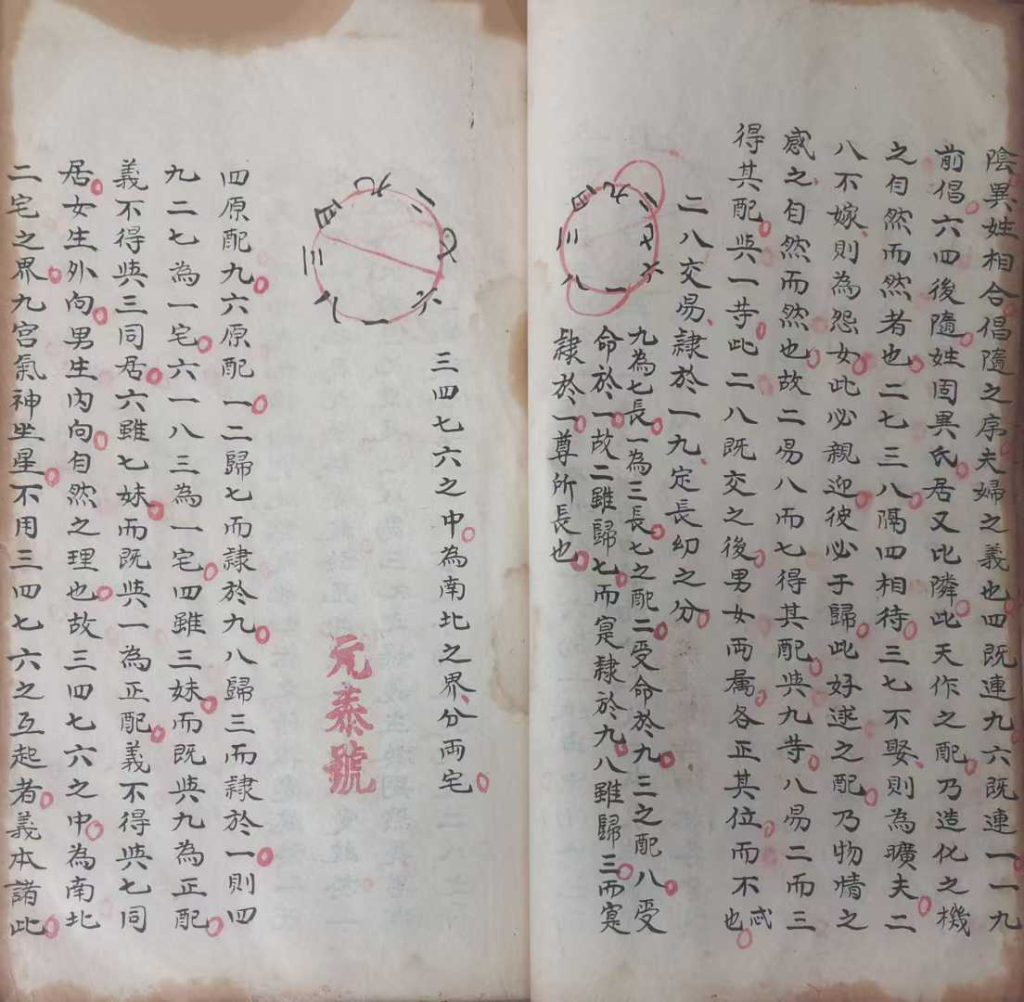 陰異姓相合倡隨之序夫婦之義也四既連九六既連一一九
前倡六四後隨姓固異氏居又比隣此天作之配乃造化之機
之自然而然者也二七三八隔四相待三七不娶則為曠夫二
八不嫁則為怨女此必親迎彼必于歸此好逑之配乃物情之
感之自然而然也故二易八而七得其配與九苐八易二而三
得其配與一苐此二八既交之後男女両属各正其位而不忒也
二八交易隷於一九定長幼之分
九為七長一為三長七之配二受命於九三之配八受
命於一故二雖歸七而寔隷於九八雖歸三而寔
隷於一尊所長也
九
二
七
六
一
八
三
四
三四七六之中為南北之界分両宅
九
二
七
六
一
八
三
四
元泰號
四原配九六原配一二歸七而隷於九八歸三而隷於一則四
九二七為一宅六一八三為一宅四雖三妹而既與九為正配
義不得與三同居六雖七妹而既與一為正配義不得與七同
居女生外向男生内向自然之理也故三四七六之中為南北
二宅之界九宫氣神坐星不用三四七六之互起者義本諸此